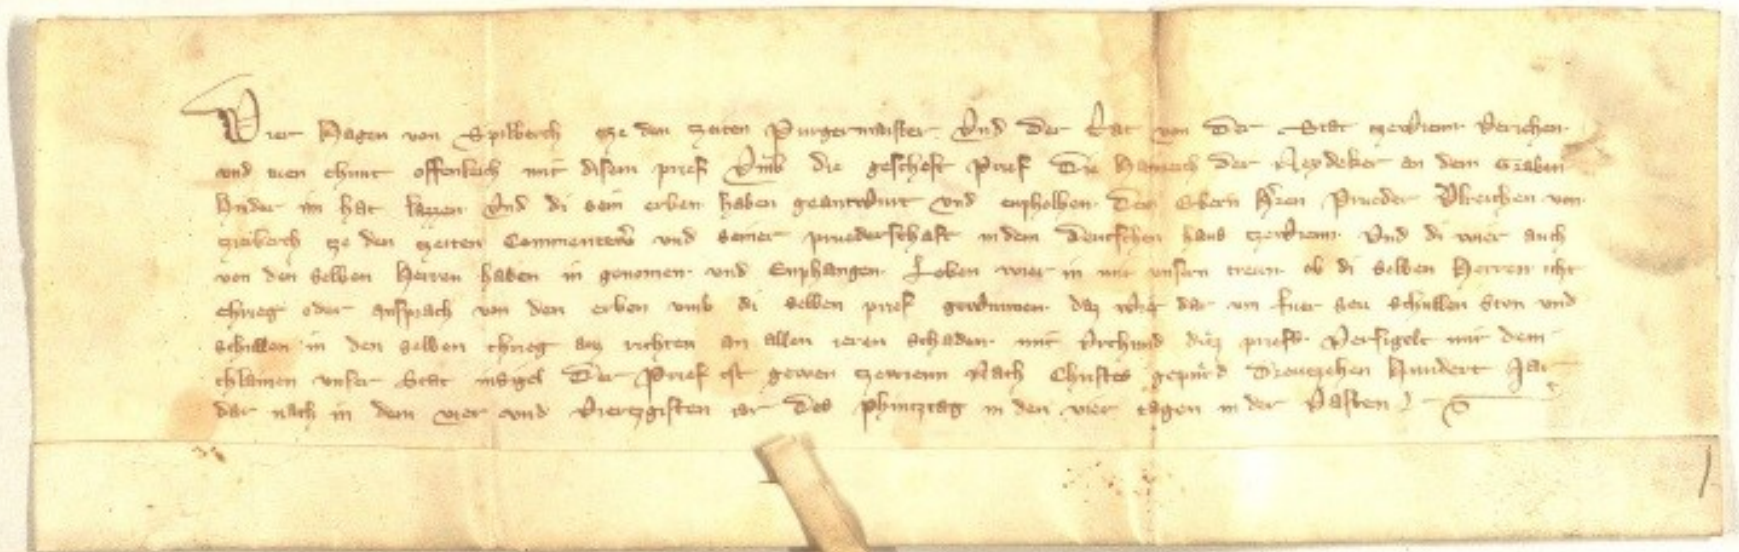 Wier Hagen von Spilberch cze den zeiten Purgermaister Und der Rat von der Stat Verichen
und tuen chunt offenleich mit disem prief Umb die gescheft Prief Die Hainreich der an dem Graben
hinder im hat lazzen Und di sein erben haben geantwurt und enpholhen Den Erbern Herren Prueder Ulreichen von
cze den zeiten und seiner pruederschaft in dem Deutschen haus Und di wier auch
von den selben Herren haben in genomen und Enphangen Loben wier in mit unsern trewn ob di selben Herren icht
chrieg oder ansprach von den erben umb di selben prief gewunnen daz wier dar um fuer seu schullen sten und
schullen in den selben chrieg aus richten an allen ieren schaden mit Urchund diez priefs Versigelt mit dem
chlainen unser Stat insigel Der Prief ist geben Nach Christes gepurd Dreuczehen Hundert Jar
dar nach in dem vier und Vierczgisten iar Des Phincztag in den vier tagen in der Vasten